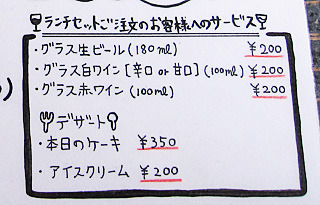 ランチセットご注文のお客様へのサービス
・グラス生ビール(180ml) ¥200
・グラス白ワイン[辛口 or 甘口](100ml) ¥200
・グラス赤ワイン(100ml) ¥200
デザート
・本日のケーキ ¥350
・アイスクリーム ¥200